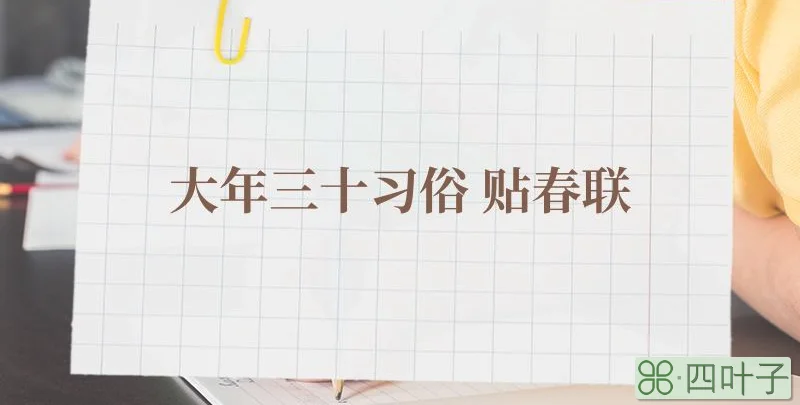 大年三十习俗 贴春联
四叶子